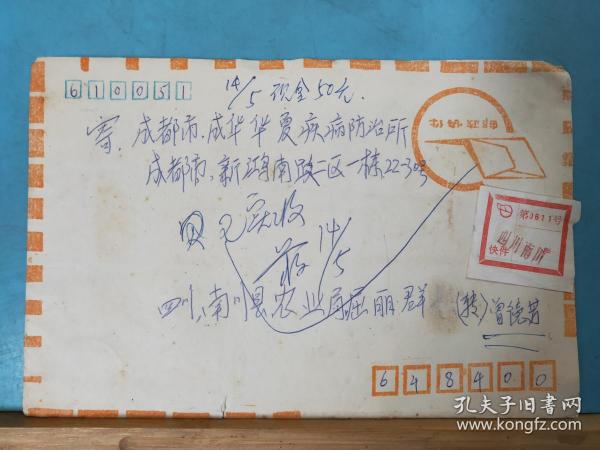 610051
14/5 现金50元.
寄. 成都市. 成华华夏疾病防治所
成都市. 新鸿南路二区一栋22-30号
已实收
14/5
第3611号
快件
四川南川
四川南川县农业局屈丽群 (转) 曾德芳
648400
孔夫子旧书网
www.kongfz.com